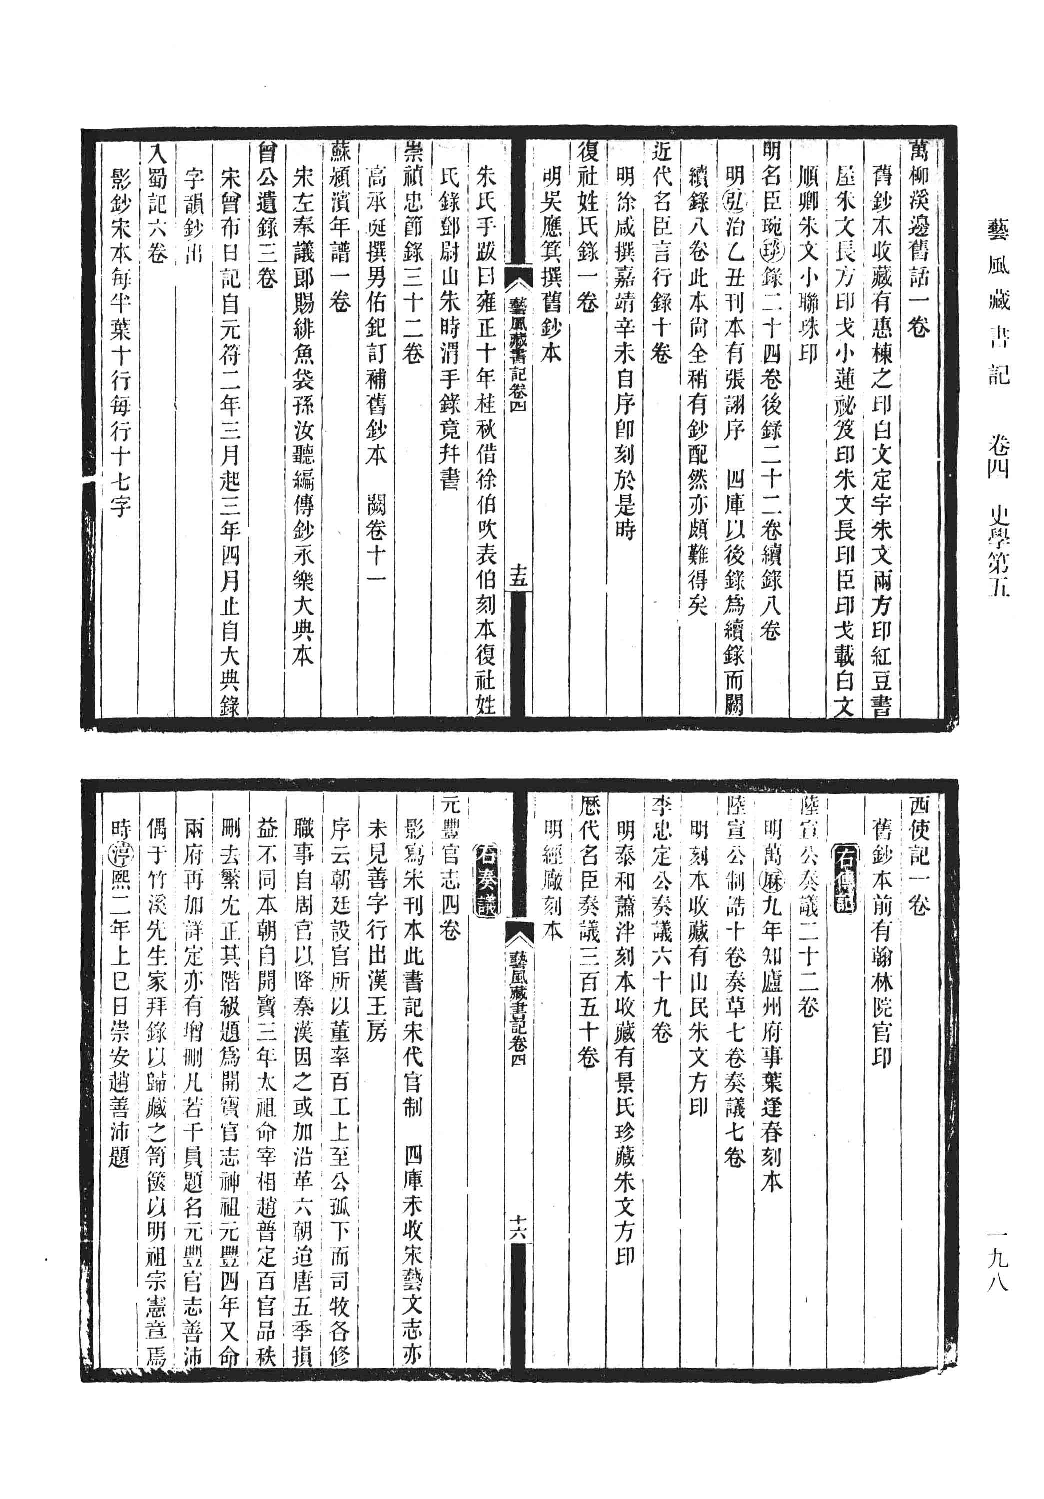 藝風藏書記　卷四　史學第五
一九八
萬柳溪邊舊話一卷
舊鈔本收藏有惠棟之印白文定宇朱文兩方印紅豆書
屋朱文長方印戈小蓮祕笈印朱文長印臣印戈載白文
順卿朱文小聯珠印
明名臣琬琰錄二十四卷後錄二十二卷續錄八卷
明弘治乙丑刊本有張詡序　四庫以後錄爲續錄而闕
續錄八卷此本尙全稍有鈔配然亦頗難得矣
近代名臣言行錄十卷
明徐咸撰嘉靖辛未自序卽刻於是時
復社姓氏錄一卷
明吳應箕撰舊鈔本
藝風藏書記卷四
十五
朱氏手跋曰雍正十年桂秋借徐伯吹表伯刻本復社姓
氏錄鄧尉山朱時渭手錄竟幷書
崇禎忠節錄三十二卷
高承埏撰男佑釲訂補舊鈔本　闕卷十一
蘇潁濱年譜一卷
宋左奉議郎賜緋魚袋孫汝聽編傳鈔永樂大典本
曾公遺錄三卷
宋曾布日記自元符二年三月起三年四月止自大典錄
字韻鈔出
入蜀記六卷
影鈔宋本每半葉十行每行十七字
西使記一卷
舊鈔本前有翰林院官印
右傳記
陸宣公奏議二十二卷
明萬厤九年知廬州府事葉逢春刻本
陸宣公制誥十卷奏草七卷奏議七卷
明刻本收藏有山民朱文方印
李忠定公奏議六十九卷
明泰和蕭泮刻本收藏有景氏珍藏朱文方印
歷代名臣奏議三百五十卷
明經廠刻本
藝風藏書記卷四
十六
右奏議
元豐官志四卷
影寫宋刊本此書記宋代官制　四庫未收宋藝文志亦
未見善字行出漢王房
序云朝廷設官所以董率百工上至公孤下而司牧各修
職事自周官以降秦漢因之或加沿革六朝迨唐五季損
益不同本朝自開寶三年太祖命宰相趙普定百官品秩
刪去繁冗正其階級題爲開寶官志神祖元豐四年又命
兩府再加詳定亦有增刪凡若干員題名元豐官志善沛
偶于竹溪先生家拜錄以歸藏之笥篋以明祖宗憲章焉
時淳熙二年上巳日崇安趙善沛題